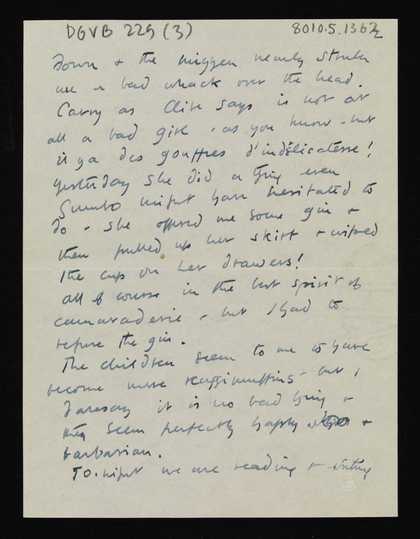 DGVB 229 (3) 8010.5.1362
down & the mizzen nearly struck
me a bad whack over the head.
Carry as Clive says is not at
all a bad girl - as you know - but
il y a des gouffres d'indélicatesse!
Yesterday she did a thing even
Gumbo might have hesitated to
do - she offered me some gin &
then pulled up her skirt & wiped
the cup on her drawers!
All of course in the best spirit of
camaraderie - but I had to
refuse the gin.
The children seem to me to have
become mere raggimuffins - but I
daresay it is no bad thing &
they seem perfectly happy &
barbarian.
To-night we are reading & writing